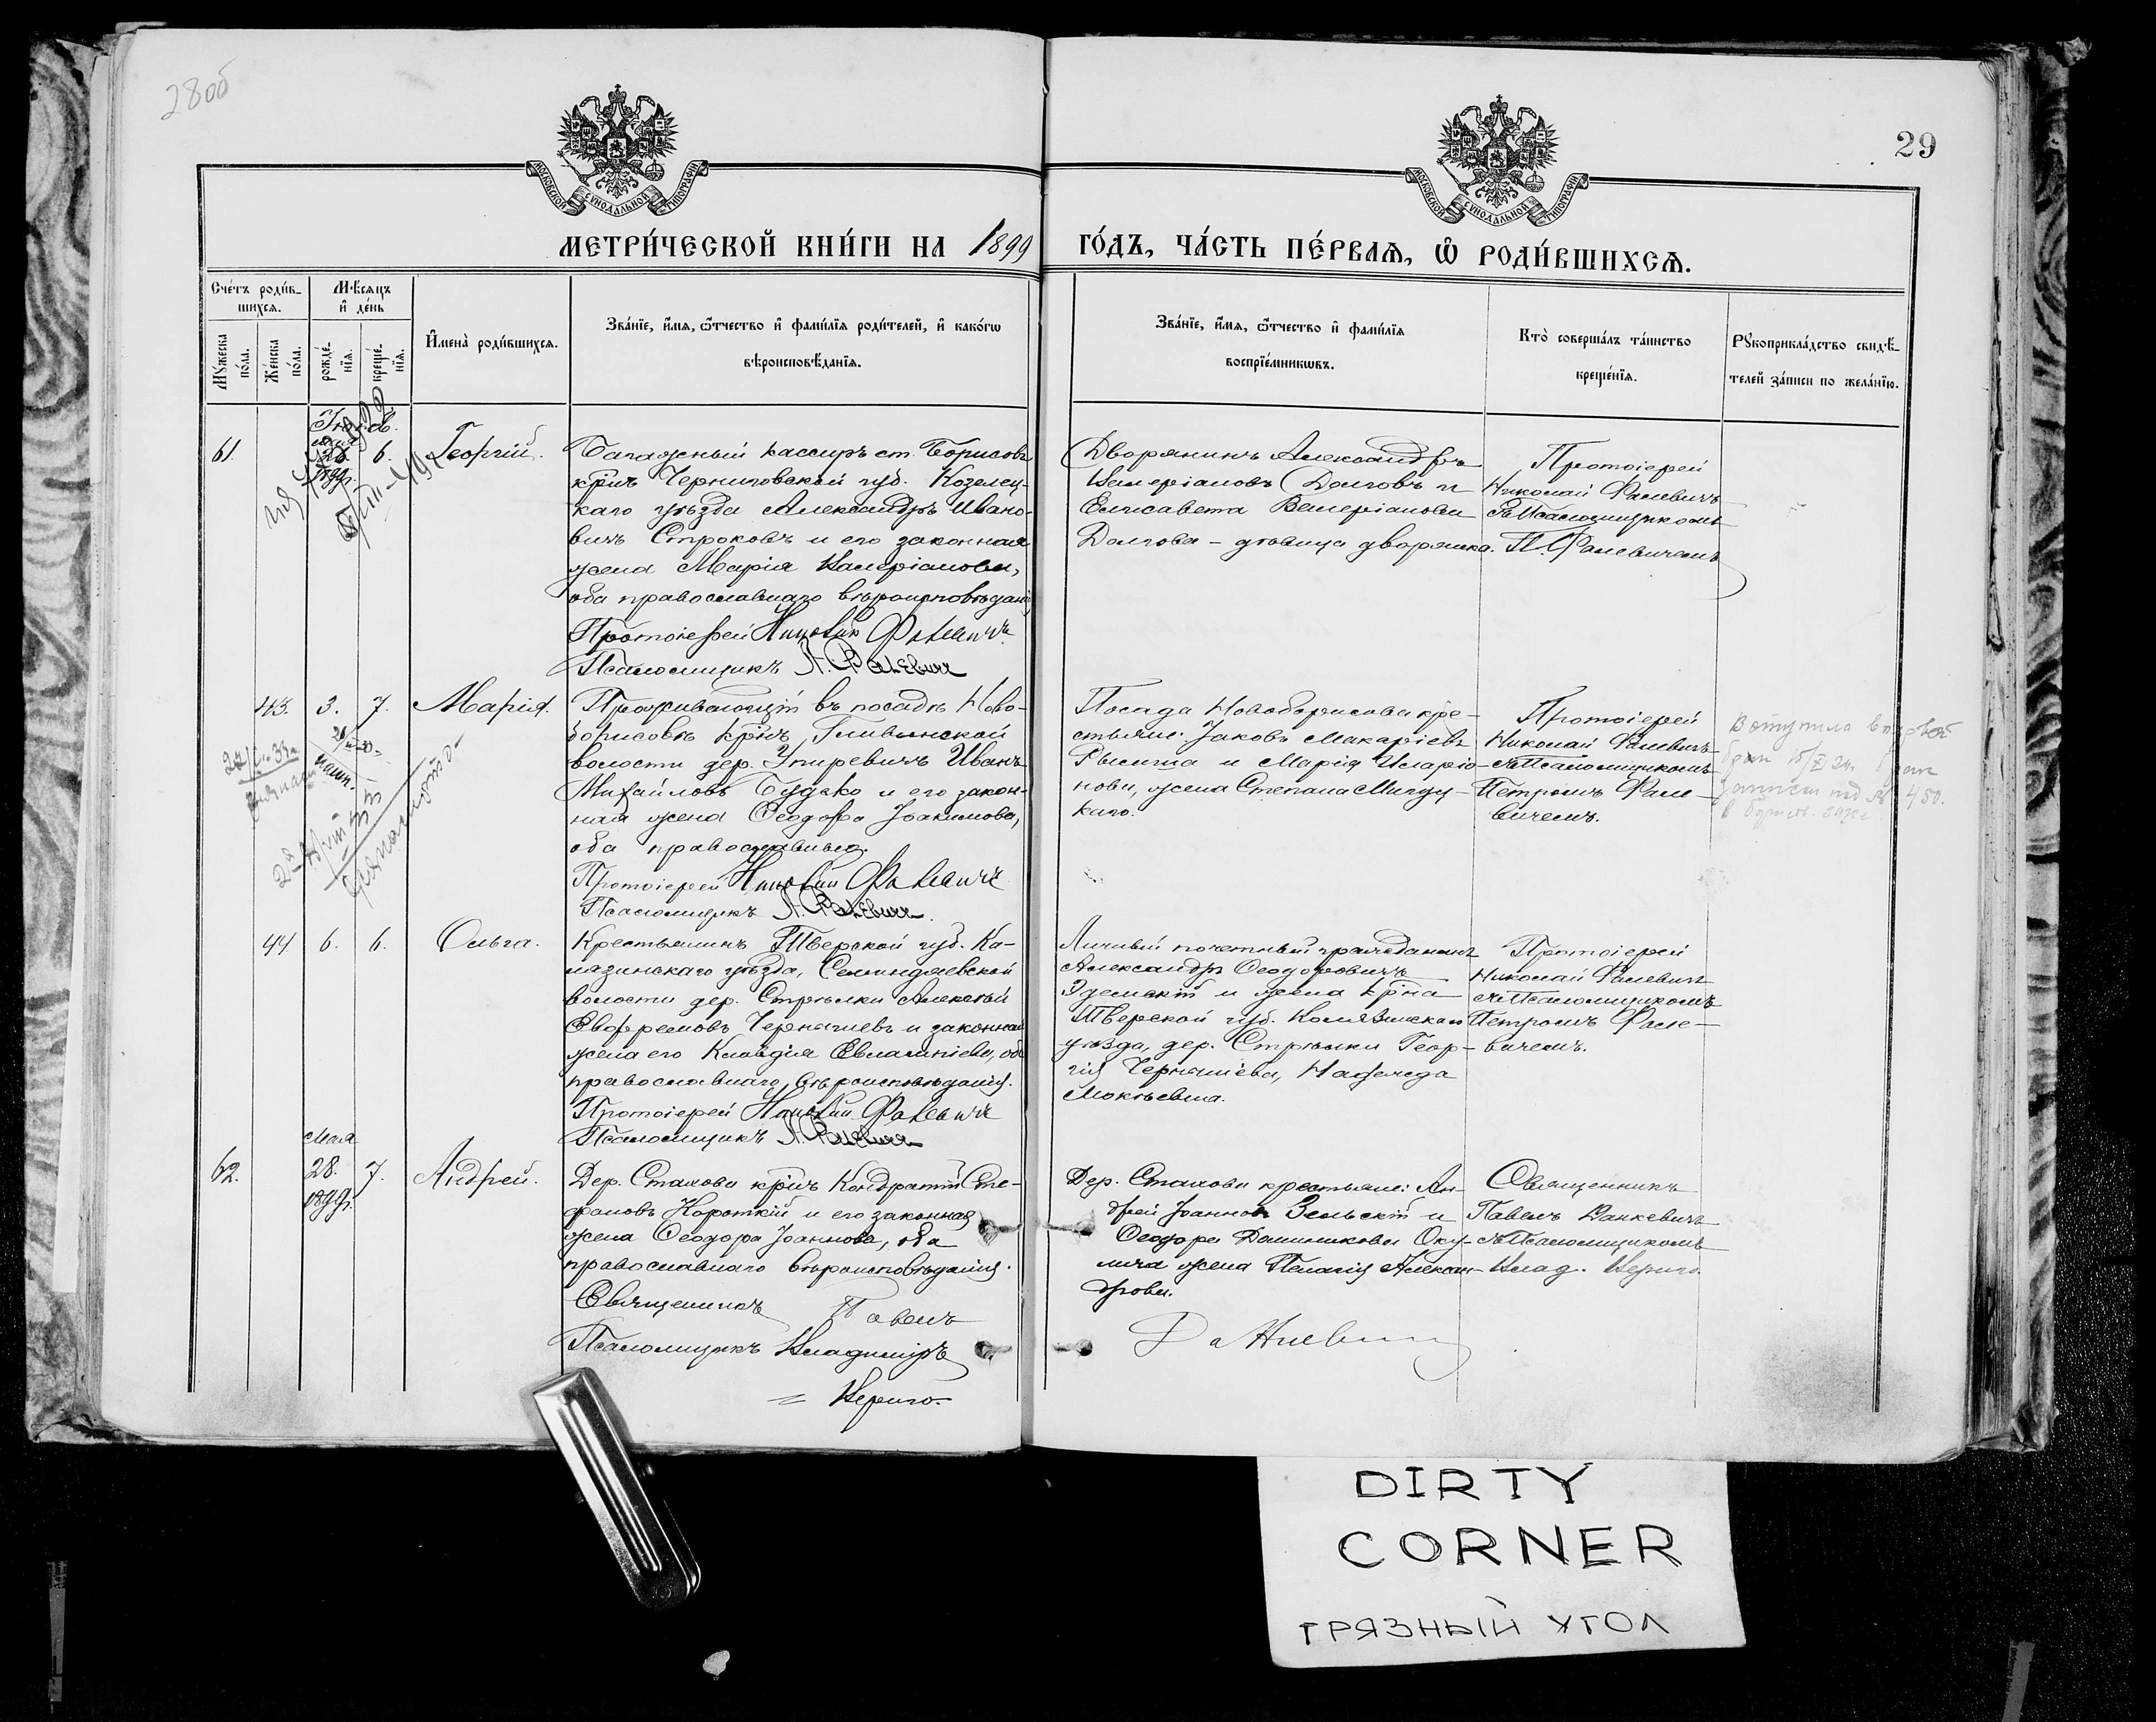 28об
29
МОСКОВСКОЙ СУНОДАЛЬНОЙ ТИПОГРАФІИ
МОСКОВСКОЙ СУНОДАЛЬНОЙ ТИПОГРАФІИ
МЕТРИ́ЧЕСКОЙ КНИ́ГИ НА 1899 ГО́ДЪ, ЧА́СТЬ ПЕ́РВАѦ, Ѽ РОДИ́ВШИХСѦ.
Сче́тъ роди́в-
шихсѧ.
Мѣ́сѧцъ
и҆ де́нь
Мꙋ́жеска по́ла.
Же́нска по́ла.
рожде́-
нїѧ.
креще́-
нїѧ.
И҆мена̀ роди́вшихсѧ.
Зва́нїе, и҆́мѧ, ѻ҆́тчество и҆ фами́лїѧ роди́телей, и҆ како́гѡ
вѣроисповѣ́данїѧ.
Зва́нїе, и҆́мѧ, ѻ҆́тчество и҆ фами́лїѧ
воспрїе́мникѡвъ.
Кто̀ соверша́лъ та́инство
креще́нїѧ.
Рꙋкоприкла́дство свидѣ́-
телей за́писи по жела́нїю.
61.
мая
28
1899г.
6.
Георгій.
Багажный кассиръ ст. Борисовъ
кр-нъ Черниговской губ. Козелец-
каго уѣзда Александръ Ивано-
вичъ Строковъ и его законная
жена Марія Валеріанова,
оба православнаго вѣроисповѣданія
Протоіерей Николай Фалевичъ
Псаломщикъ П. Фалевичъ
Дворянинъ Александръ
Валеріановъ Долговъ и
Елисавета Валеріанова
Долгова - дѣвица дворянка.
Протоіерей
Николай Фалевичъ
съ Псаломщикомъ
П. Фалевичемъ
43.
3.
7.
Марія.
Проживающій въ посадѣ Ново-
борисовѣ кр-нъ Гливинской
волости дер. Упиревичъ Иванъ
Михайловъ Будько и его закон-
ная жена Ѳеодора Іоакимова,
оба православные.
Протоіерей Николай Фалевичъ
Псаломщикъ П. Фалевичъ.
Посада Новоборисова кре-
стьяне: Іаковъ Макаріевъ
и Марія Иларіо-
нова, жена Степана
Протоіерей
Николай Фалевичъ
съ Псаломщикомъ
Петромъ Фале-
вичемъ.
44.
6.
6.
Ольга.
Крестьянинъ Тверской губ. Ка-
лязинскаго уѣзда, Семендяевской
волости дер. Стрѣлки Алексѣй
Евфремовъ Чернышевъ и законная
жена его Клавдія Евлампіева, оба
православнаго вѣроисповѣданія.
Протоіерей Николай Фалевичъ
Псаломщикъ П. Фалевичъ
Личный почетный гражданинъ
Александръ Ѳеодоровичъ
и жена кр-на
Тверской губ. Калязинскаго
уѣзда, дер. Стрѣлки Геор-
гія Чернышева, Надежда
Протоіерей
Николай Фалевичъ
съ Псаломщикомъ
Петромъ Фале-
вичемъ.
62.
Мая
28.
1899г.
7.
Андрей.
Дер. Стахова кр-нъ Кондратій Сте-
фановъ Короткій и его законная
жена Ѳеодора Іоаннова, оба
православнаго вѣроисповѣданія.
Священникъ Павелъ
Псаломщикъ Владиміръ
Дер. Стахова крестьяне: Ан-
дрей Іоанновъ Зельскій и
жена Пелагія Алексан-
дрова.
Священникъ
Павелъ Данкевичъ
съ Псаломщикомъ
Влад.
DIRTY
CORNER
ГРЯЗНЫЙ УГОЛ